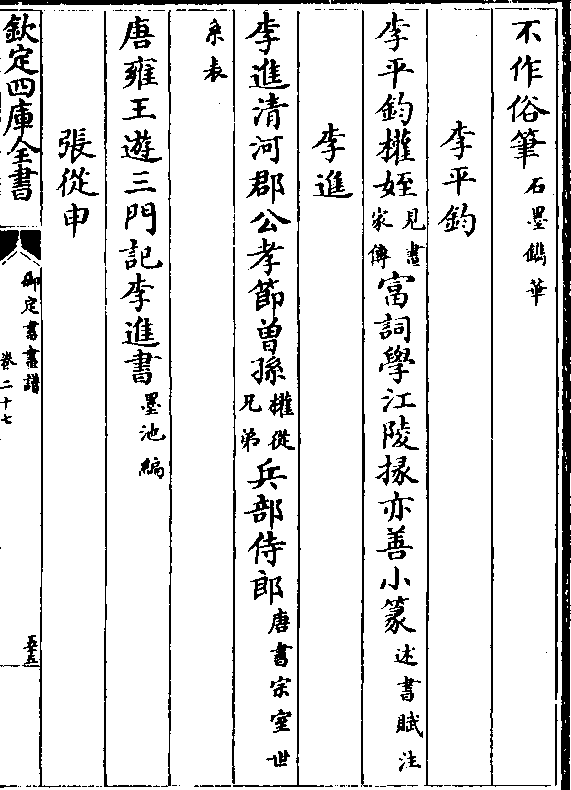 不作俗筆石墨鐫華
李平鈞
李平鈞㩲姪見書家傳富詞學江陵掾亦善小篆述書賦注
李進
李進清河郡公孝節曽孫㩲從兄弟兵部侍郎唐書宗室世
系表
唐雍王遊三門記李進書墨池編
張從申
欽定四庫全書
御定書畫譜
卷二十七
五五